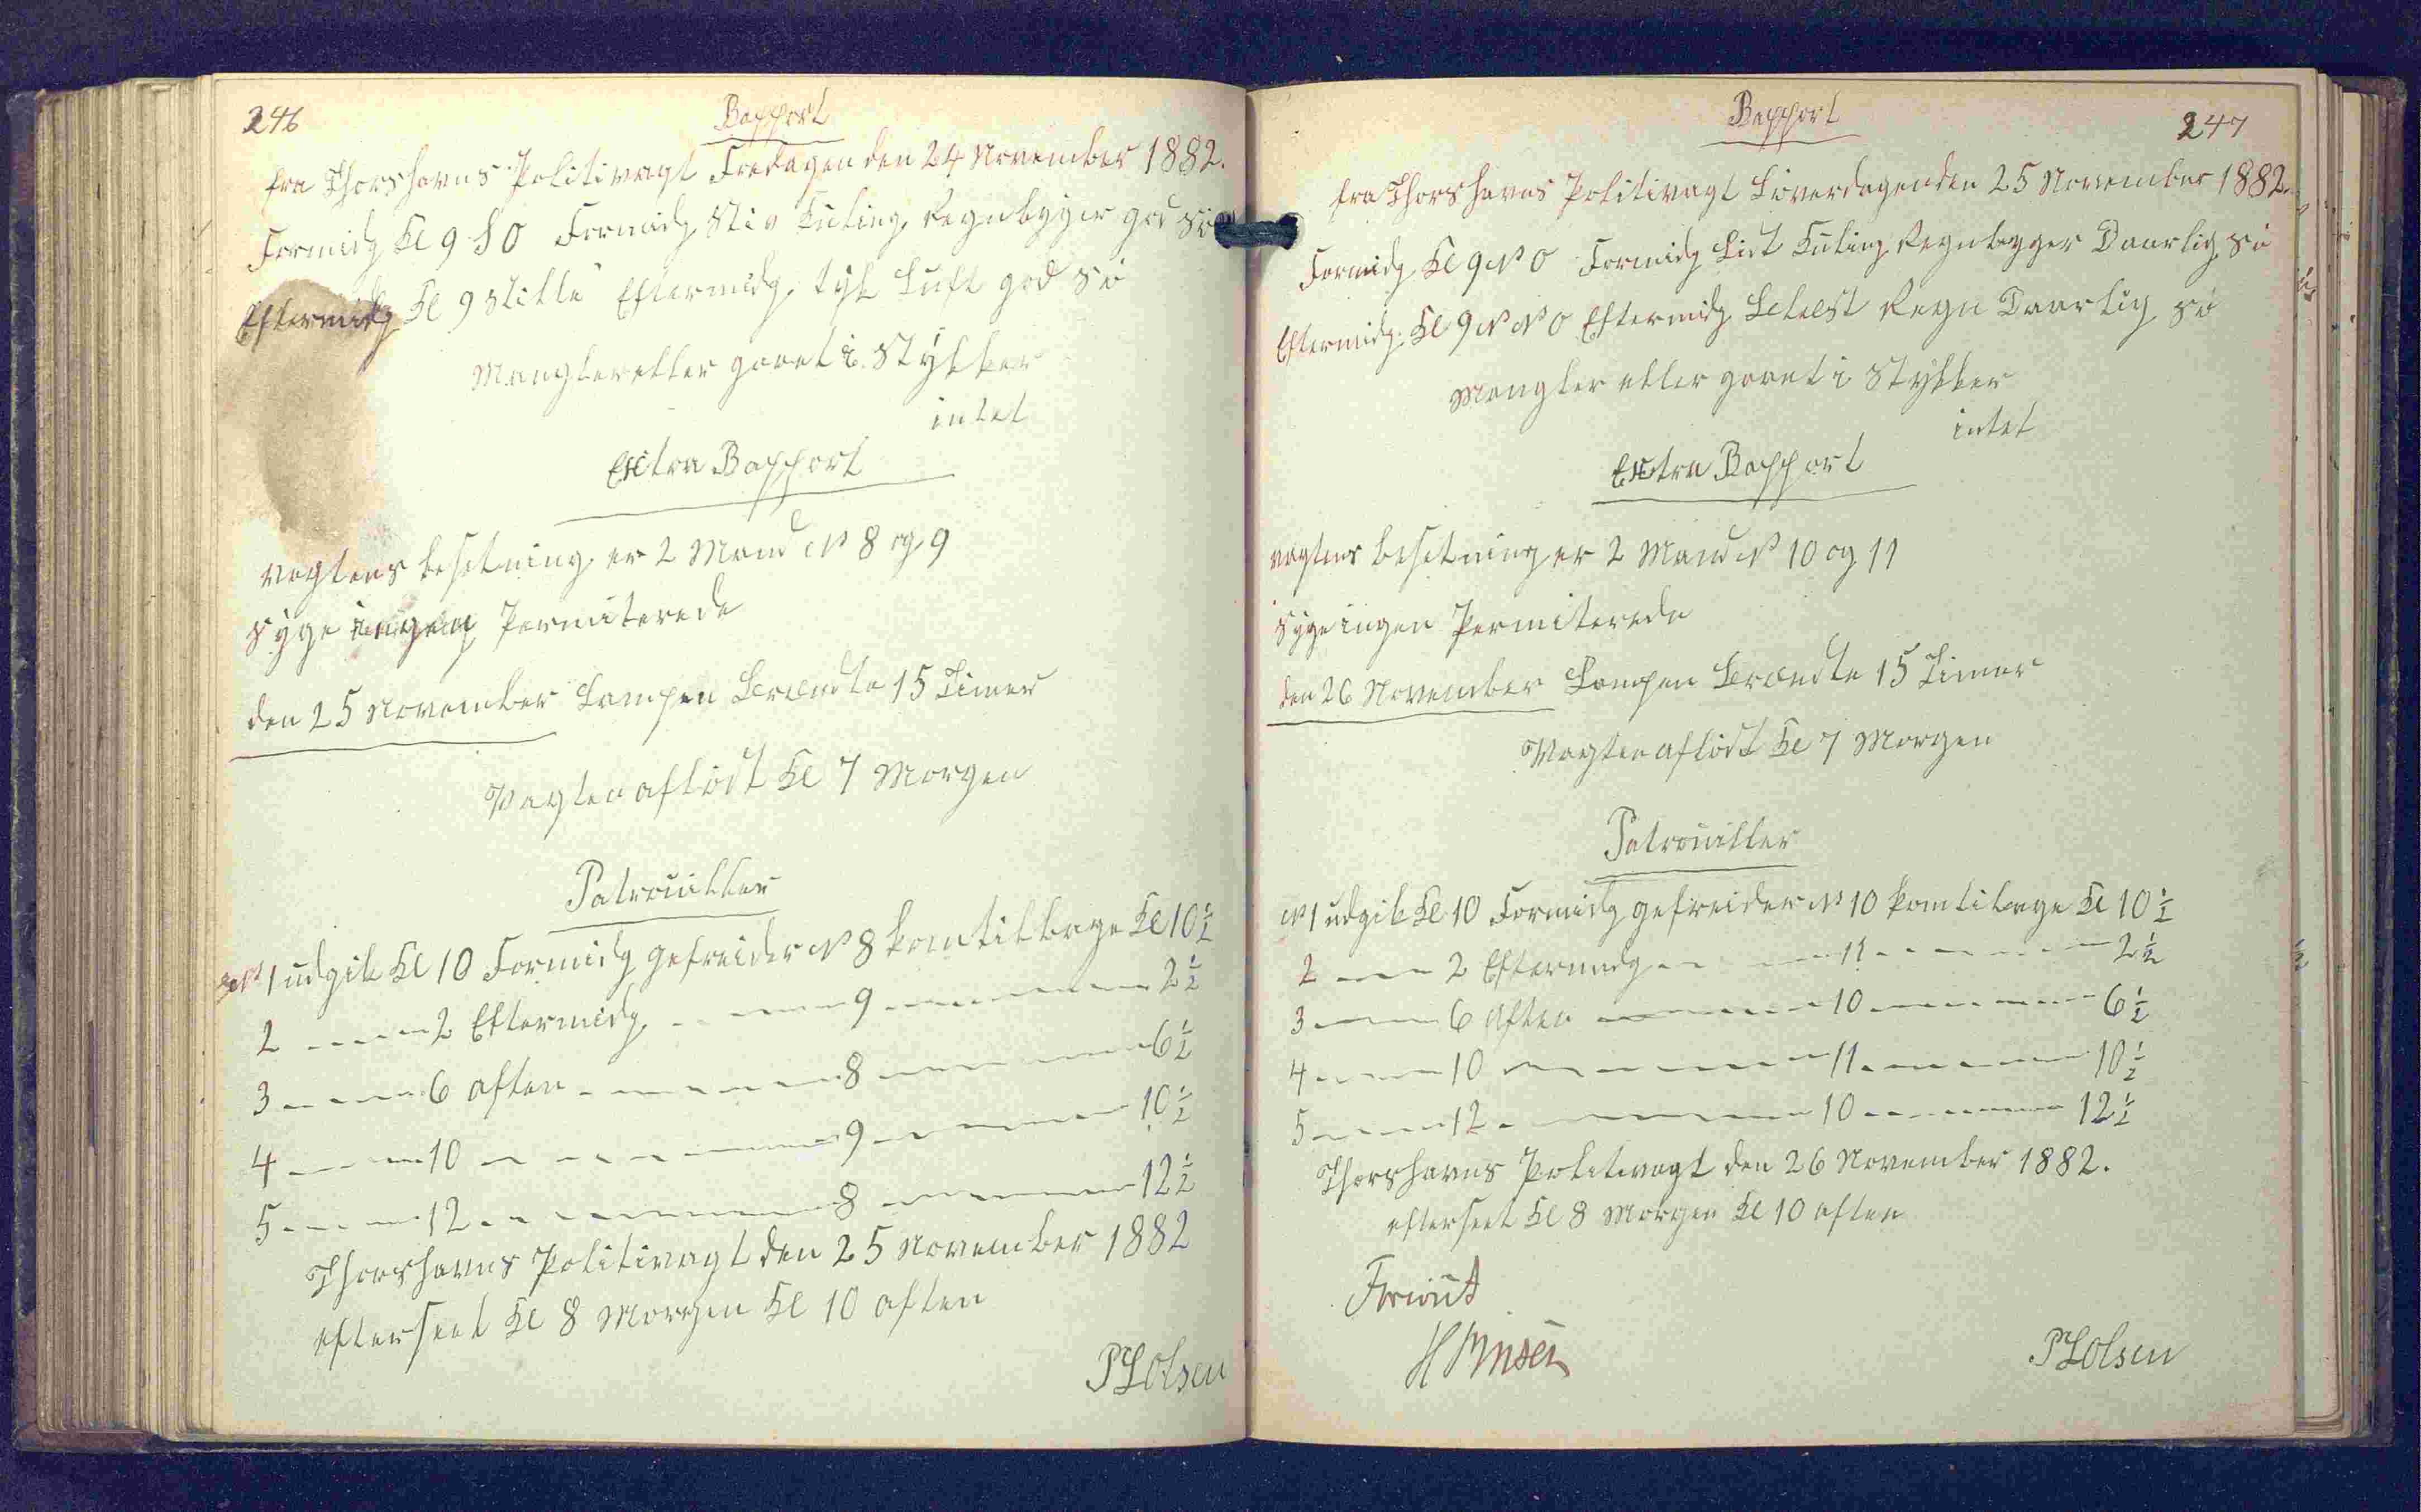 246
Rapport
fra Thorshavns Politivagt Fredagen den 24 November 1882.
Formidg Kl 9 S O Formidg Stiv Kuling Regnbyger god sö
Eftermidg Kl 9 Stille Eftermidg tyk Luft god sö
Mangler eller gaaet i Stykker
intet
Extra Rapport
Vagtens besetning er 2 Mand № 8 og 9
syge ingen Permiterede
den 25 November Lampen Brændte 15 Timer
Vagten aflöst Kl 7 Morgen
Patrouiller
№ 1 udgik Kl 10 Formidg gefreider № 8 kom tilbage Kl 10 1/2
2 — — 2 Eftermidg — — 9 — — — 2 1/2
3 — — 6 aften — — — 8 — — — 6 1/2
4 — — 10 — — — 9 — — — 10 1/2
5 — — 12 — — — 8 — — — 12 1/2
Thorshavns Politivagt den 25 November 1882
efterseet Kl 8 Morgen Kl 10 aften
PLOlsen
Rapport
247
fra Thorshavns Politivagt Löverdagen den 25 November 1882.
Formidg Kl 9 N O Formidg Lidt Kuling Regnbyger Daarlig sö
Eftermidg Kl 9 N N O Eftermidg Blæst Regn Daarlig sö
Mangler eller gaaet i Stykker
intet
Extra Rapport
vagtens besetning er 2 Mand № 10 og 11
syge ingen Permiterede
den 26 November Lampen Brændte 15 Timer
Vagten aflöst Kl 7 Morgen
Patrouiller
№ 1 udgik Kl 10 Formidg gefreider № 10 kom tilbage Kl 10 1/2
2 — — 2 Eftermidg — — 11 — — — 2 1/2
3 — — 6 Aften — — — 10 — — — 6 1/2
4 — — 10 — — — 11 — — — 10 1/2
5 — — 12 — — — 10 — — — 12 1/2
Thorshavns Politivagt den 26 November 1882.
efterseet Kl 8 Morgen Kl 10 aften
PLOlsen